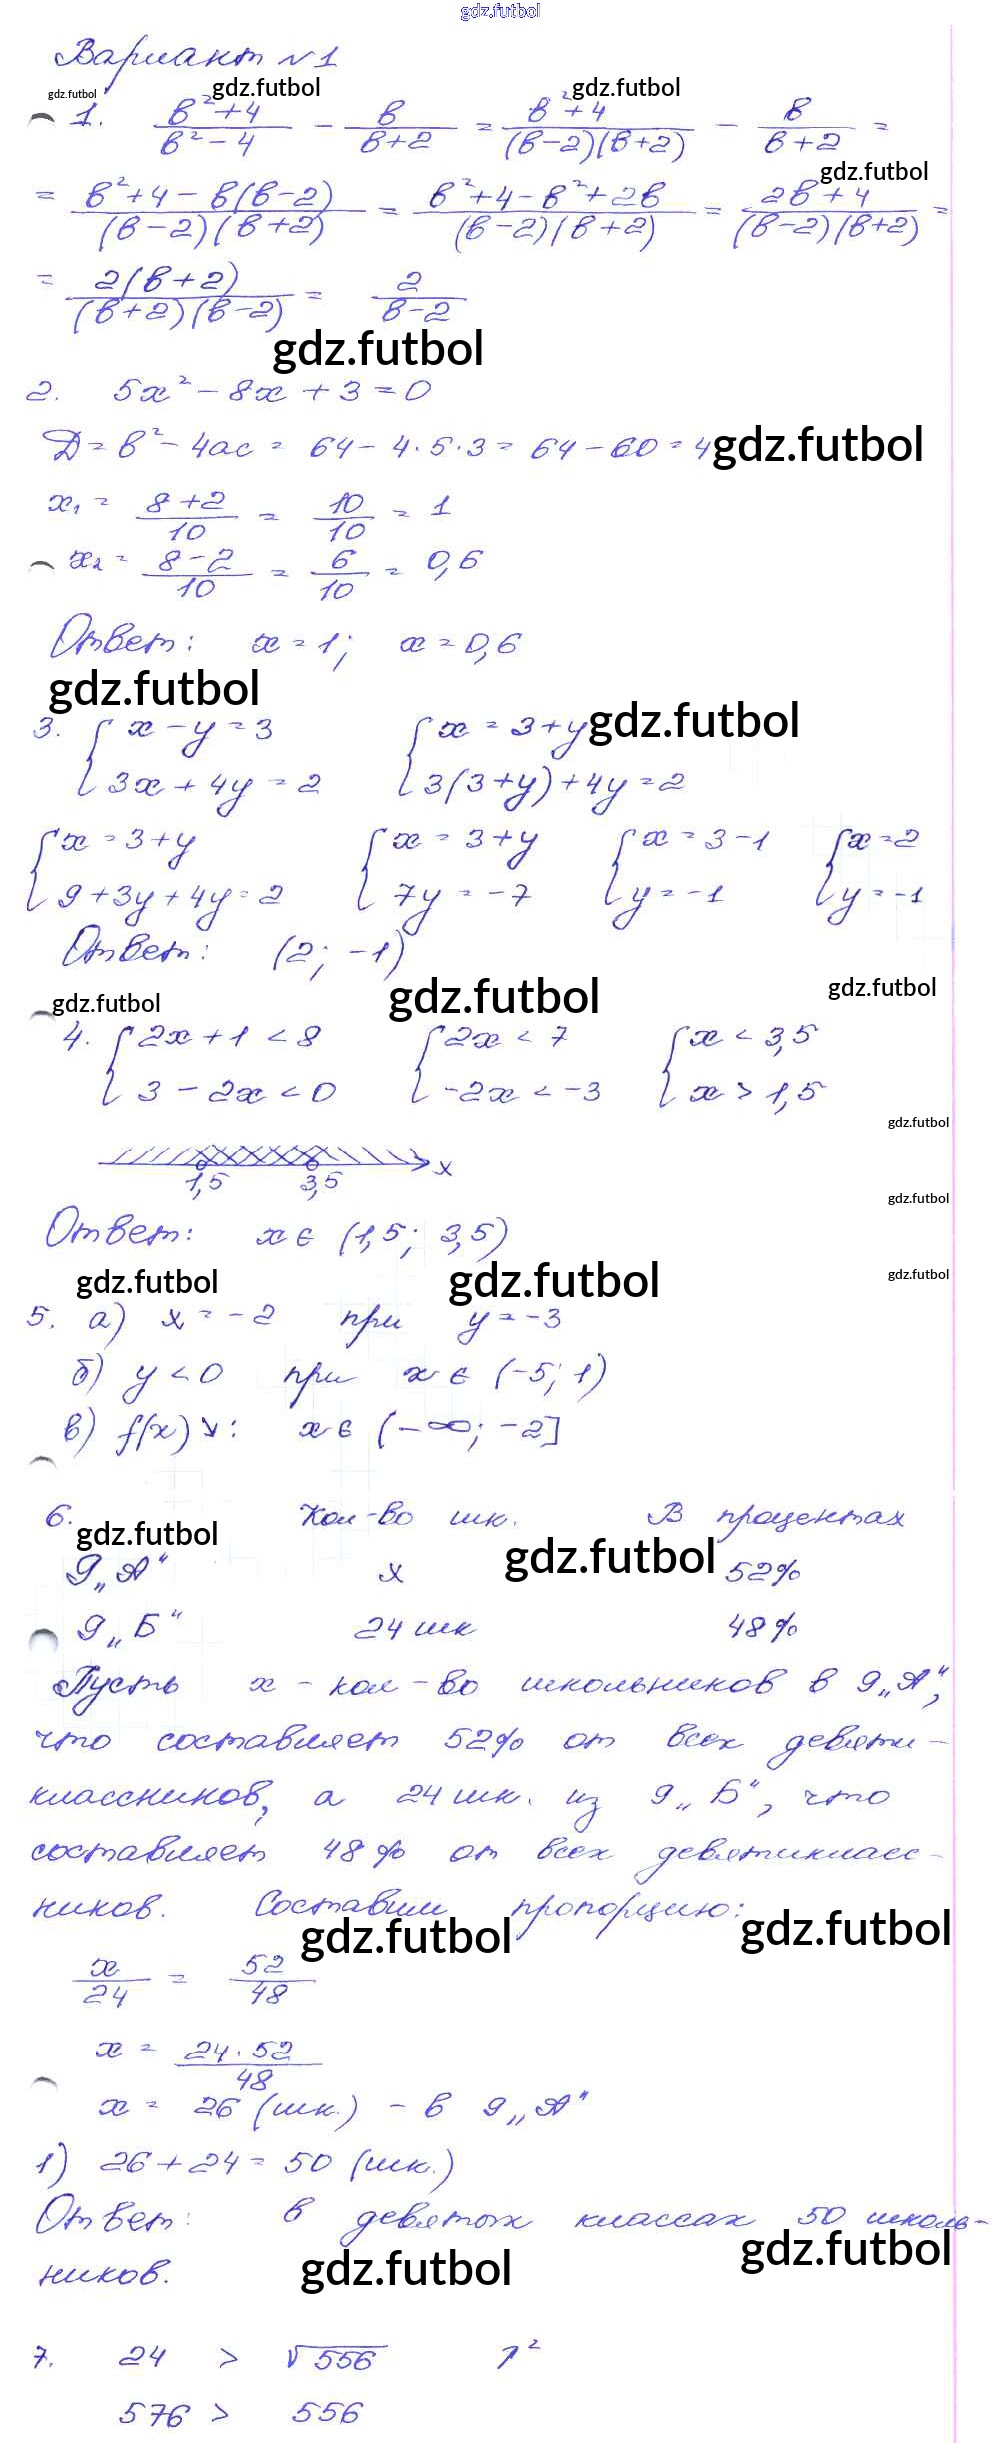 gdz.futbol
Вариант №1
gdz.futbol gdz.futbol gdz.futbol
1. (в²+4)/(в²-4) - в/(в+2) = (в²+4)/((в-2)(в+2)) - в/(в+2) =
gdz.futbol
= (в²+4-в(в-2))/((в-2)(в+2)) = (в²+4-в²+2в)/((в-2)(в+2)) = (2в+4)/((в-2)(в+2)) =
= 2(в+2)/((в+2)(в-2)) = 2/(в-2)
gdz.futbol
2. 5x²-8x+3=0
Д=в²-4ас = 64-4·5·3 = 64-60 = 4 gdz.futbol
x₁ = (8+2)/10 = 10/10 = 1
x₂ = (8-2)/10 = 6/10 = 0,6
Ответ: x=1; x=0,6
gdz.futbol
3. { x-y=3 { x=3+y gdz.futbol
3x+4y=2 3(3+y)+4y=2
{ x=3+y { x=3+y { x=3-1 { x=2
9+3y+4y=2 7y=-7 y=-1 y=-1
Ответ: (2; -1)
gdz.futbol gdz.futbol gdz.futbol
4. { 2x+1<8 { 2x<7 { x<3,5
3-2x<0 -2x<-3 x>1,5
gdz.futbol
x
1,5 3,5
gdz.futbol
Ответ: x∈(1,5; 3,5)
gdz.futbol gdz.futbol gdz.futbol
5. а) x=-2 при y=-3
б) y<0 при x∈(-5; 1)
в) f(x)↘: x∈(-∞; -2]
6. Кол-во шк. В процентах
gdz.futbol gdz.futbol
9„А" x 52%
9„Б" 24 шк 48%
Пусть x - кол-во школьников в 9„А",
что составляет 52% от всех девяти-
классников, а 24 шк. из 9„Б", что
составляет 48% от всех девятикласс-
ников. Составим пропорцию:
gdz.futbol gdz.futbol
x/24 = 52/48
x = (24·52)/48
x = 26 (шк.) - в 9„А"
1) 26+24=50 (шк.)
Ответ: в девятых классах 50 школь-
gdz.futbol gdz.futbol
ников.
7. 24 > √556 ↑²
576 > 556